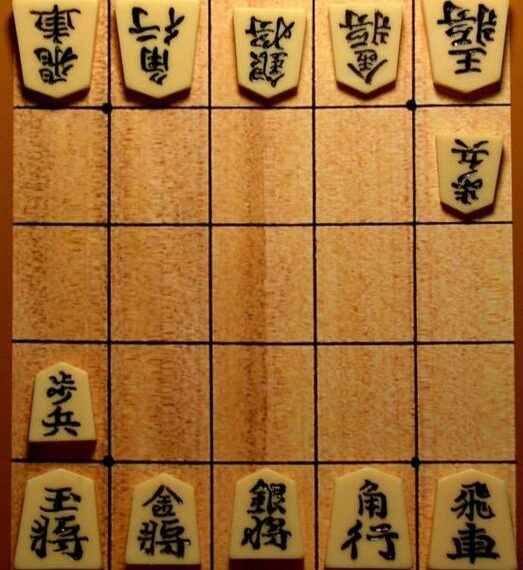 飛車 角行 銀将 金将 王将
歩兵
歩兵
玉将 金将 銀将 角行 飛車